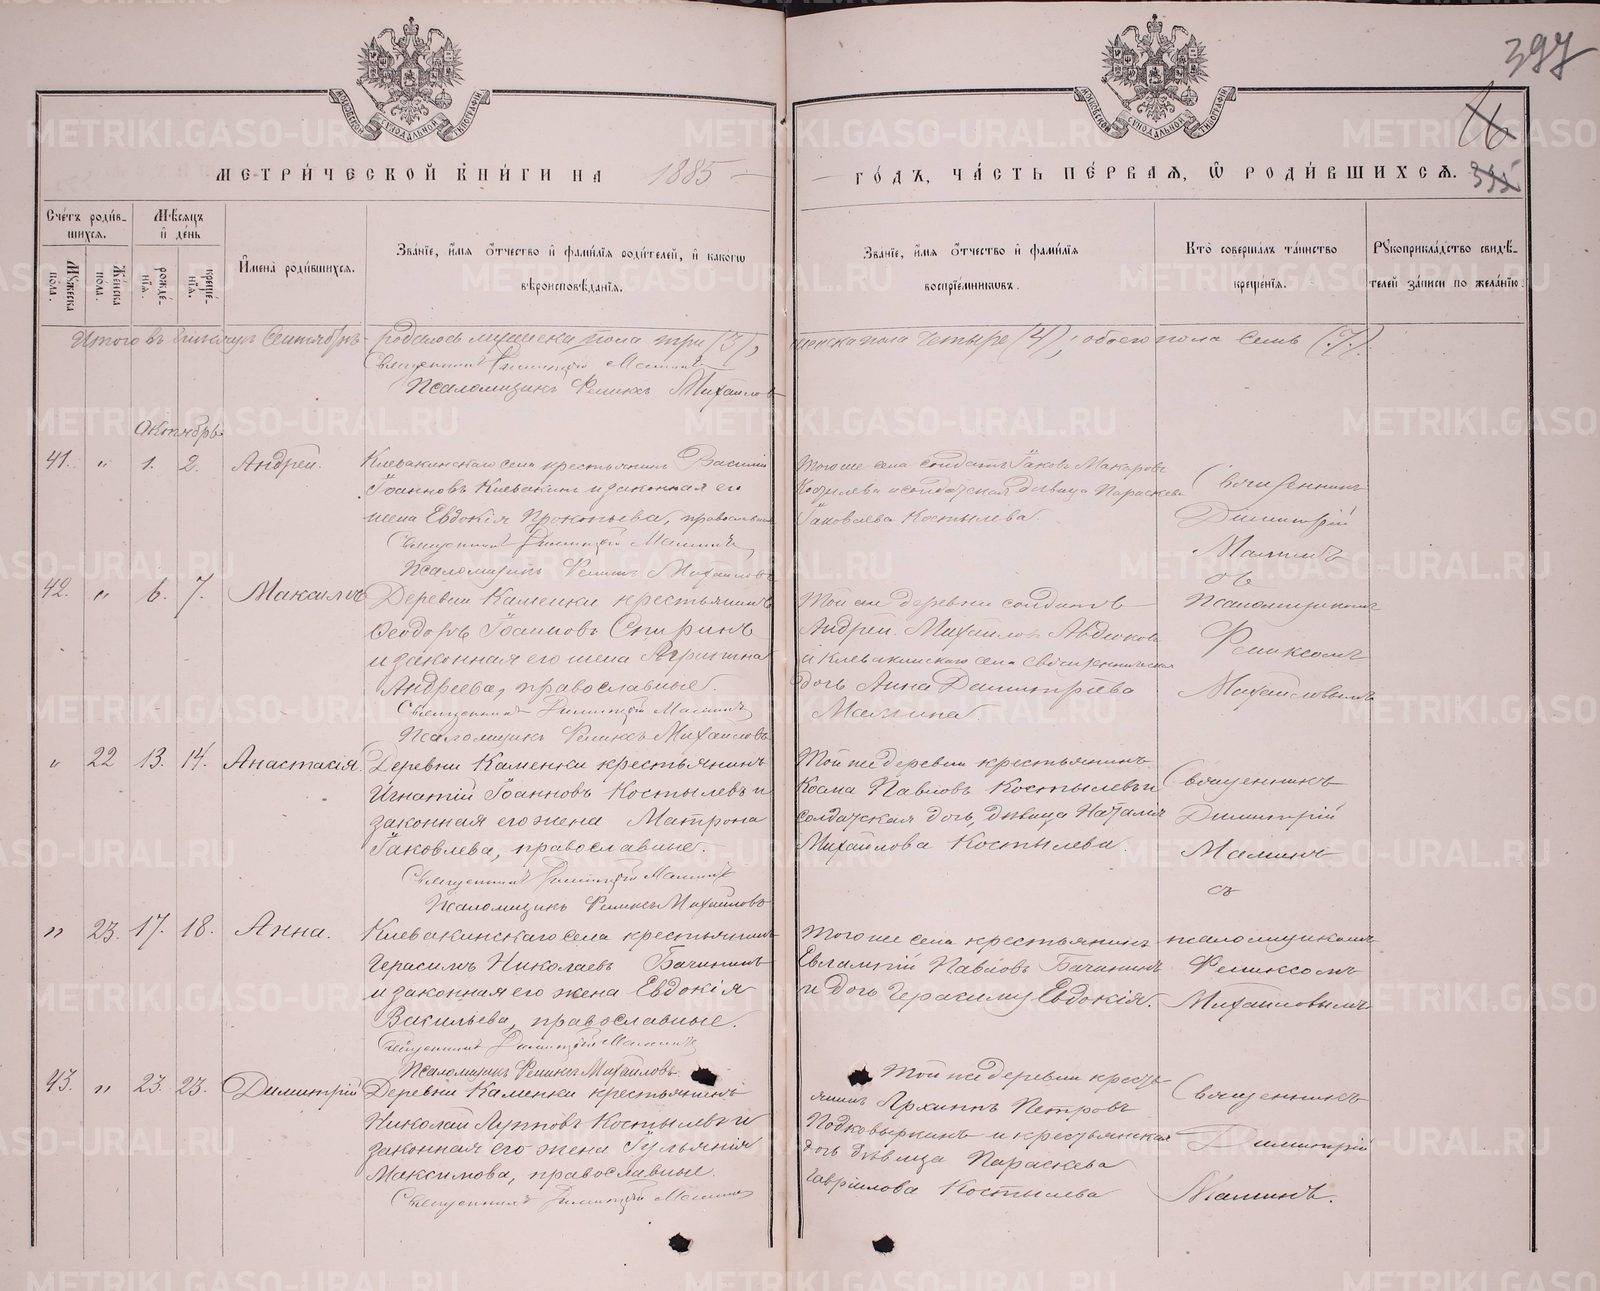 397
МЕТРИ́ЧЕСКОЙ КНИ́ГИ НА 1885
ГО́ДЪ, ЧА́СТЬ ПЕ́РВАѦ, Ѽ РОДИ́ВШИХСѦ.
Сче́тъ роди́в-
шихсѧ.
Мѣ́сѧцъ
и҆ де́нь
Мꙋ́жеска
по́ла.
Же́нска
пола.
рожде́-
нїѧ.
креще́-
нїѧ.
И҆мена̀ роди́вшихсѧ.
Зва́нїе, и҆́мѧ ѻ҆́тчество и҆ фами́лїѧ роди́телей, и҆ како́гѡ
вѣроисповѣ́данїѧ.
Зва́нїе, и҆́мѧ ѻ҆́тчество и҆ фами́лїѧ
воспрїе́мникѡвъ.
Кто̀ соверша́лъ та́инство
креще́нїѧ.
Рꙋкоприкла́дство свидѣ́-
телей за́писи по жела́нїю.
Итого въ Сентябрѣ родилось мужеска пола три (3),
женска пола четыре (4), обоего пола семь (7).
Священникъ Димитрій Маминъ
Псаломщикъ Феликсъ Михайловъ
Октябрь
41. " 1. 2. Андрей.
Клевакинскаго села крестьянинъ Василій
Іоанновъ Клевакинъ и законная его
жена Евдокія Прокопьева, православные
Священникъ Димитрій Маминъ
Псаломщикъ Феликсъ Михайловъ
Того же села солдатъ Іаковъ Макаровъ
Костылевъ и солдатская дѣвица Параскева
Іаковлева Костылева.
Священникъ
Димитрій
Маминъ
съ
42. " 6. 7. Максимъ
Деревни Каменки крестьянинъ
Ѳеодоръ Іоанновъ Спиринъ
и законная его жена Агрипина
Андреева, православные.
Священникъ Димитрій Маминъ
Псаломщикъ Феликсъ Михайловъ
Той же деревни солдатъ
Андрей Михайловъ Авдюковъ
и Клевакинскаго села священническая
дочь Анна Димитріева
Мамина.
Псаломщикомъ
Феликсомъ
Михайловымъ
" 22 13. 14. Анастасія.
Деревни Каменки крестьянинъ
Игнатій Іоанновъ Костылевъ и
законная его жена Матрона
Іаковлева, православные.
Священникъ Димитрій Маминъ
Псаломщикъ Феликсъ Михайловъ
Той же деревни крестьянинъ
Косма Павловъ Костылевъ и
солдатская дочь, дѣвица Наталія
Михайлова Костылева.
Священникъ
Димитрій
Маминъ
съ
" 23. 17. 18. Анна.
Клевакинскаго села крестьянинъ
Герасимъ Николаевъ Бачининъ
и законная его жена Евдокія
Васильева, православные.
Священникъ Димитрій Маминъ
Псаломщикъ Феликсъ Михайловъ.
Того же села крестьянинъ
Евлампій Павловъ Бачининъ
и дочь Герасиму Евдокія.
псаломщикомъ
Феликсомъ
Михайловымъ
43. " 23. 23. Димитрій
Деревни Каменки крестьянинъ
Николай Лупповъ Костылевъ и
законная его жена Іуліянія
Максимова, православные.
Священникъ Димитрій Маминъ
Той же деревни кресть-
янинъ Архиппъ Петровъ
Подковыркинъ и крестьянская
дочь дѣвица Параскева
Гавріилова Костылева
Священникъ
Димитрій
Маминъ.
METRIKI.GASO-URAL.RU